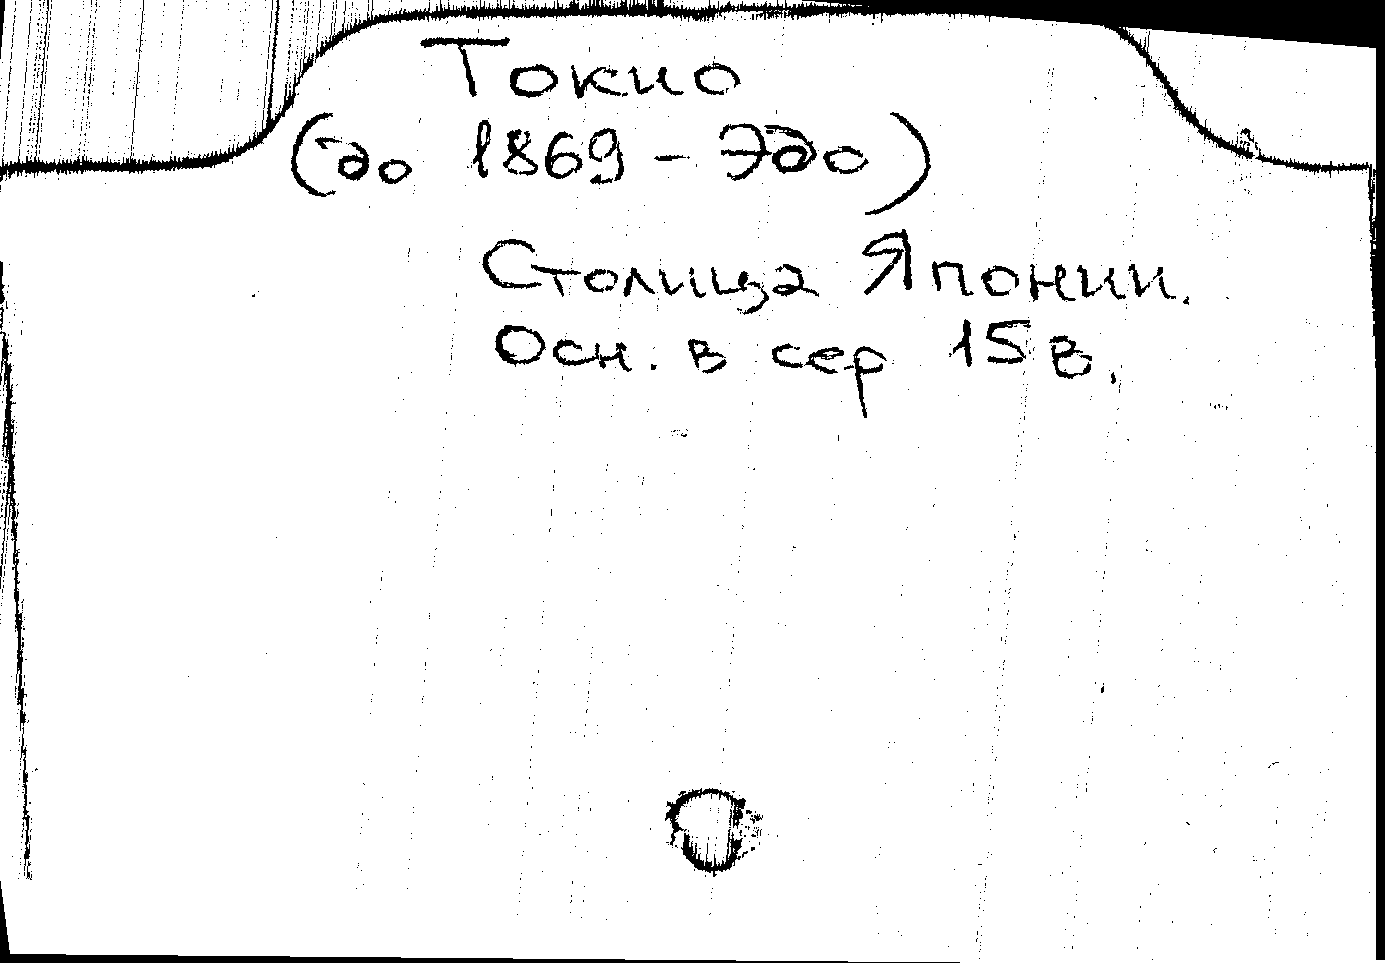 Токио
(до 1869 - Эдо)
Столица Японии.
Осн. в сер 15 в.